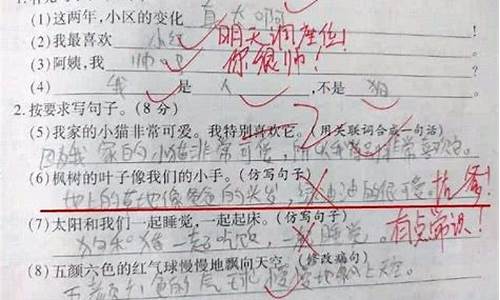 (1)这两年,小区的变化 真大啊
(2)我最喜欢 小红 明天调座位!
(3)阿姨,我 帅吗 你很帅!
(4) 我 是 人 ,不是 狗
2.按要求写句子。(8 分)
(5)我家的小猫非常可爱。我特别喜欢它。(用关联词合成一句话)
因为我家的小猫非常可爱,所以我 非常喜欢它。
(6)枫树的叶子像我们的小手。(仿写句子)
地上的草地像爸爸的头发,绿油油的很可爱。 抗争!
(7)太阳和我们一起睡觉,一起起床。(仿写句子)
狗和猪一起吃饭,一起睡觉。 有点常识!
(8)五颜六色的红气球慢慢地飘向天空。(修改病句)
五颜六色的气球慢慢地飘上天空。